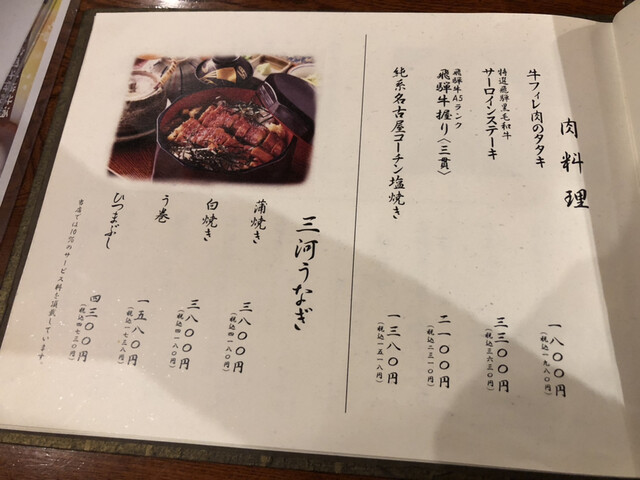 肉料理
牛フィレ肉のタタキ
一八〇〇円
(税込一九八〇円)
特選飛騨黒毛和牛
サーロインステーキ
三三〇〇円
(税込三六三〇円)
飛騨牛A5ランク
飛騨牛握り〈三貫〉
二一〇〇円
(税込二三一〇円)
純系名古屋コーチン塩焼き
一三八〇円
(税込一五一八円)
三河うなぎ
蒲焼き
三八〇〇円
(税込四一八〇円)
白焼き
三八〇〇円
(税込四一八〇円)
う巻
一五八〇円
(税込一七三八円)
ひつまぶし
四三〇〇円
(税込四七三〇円)
当店では10%のサービス料を頂戴しています。